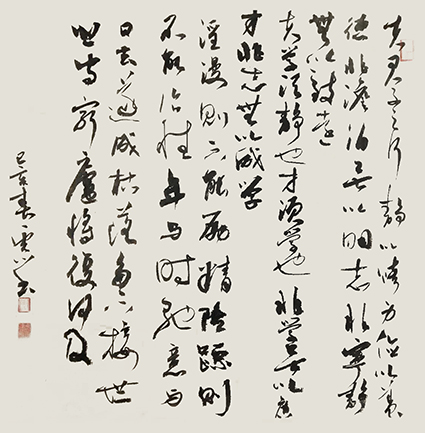 夫君子之行静以修身俭以养
德非澹泊无以明志非宁静
無以致遠
夫学须静也才须学也非学无以廣
才非志無以成学
淫漫则不能励精险躁则
不能治性年与时驰意与
日去遂成枯落多不接世
悲守窮廬将復何及
己亥春